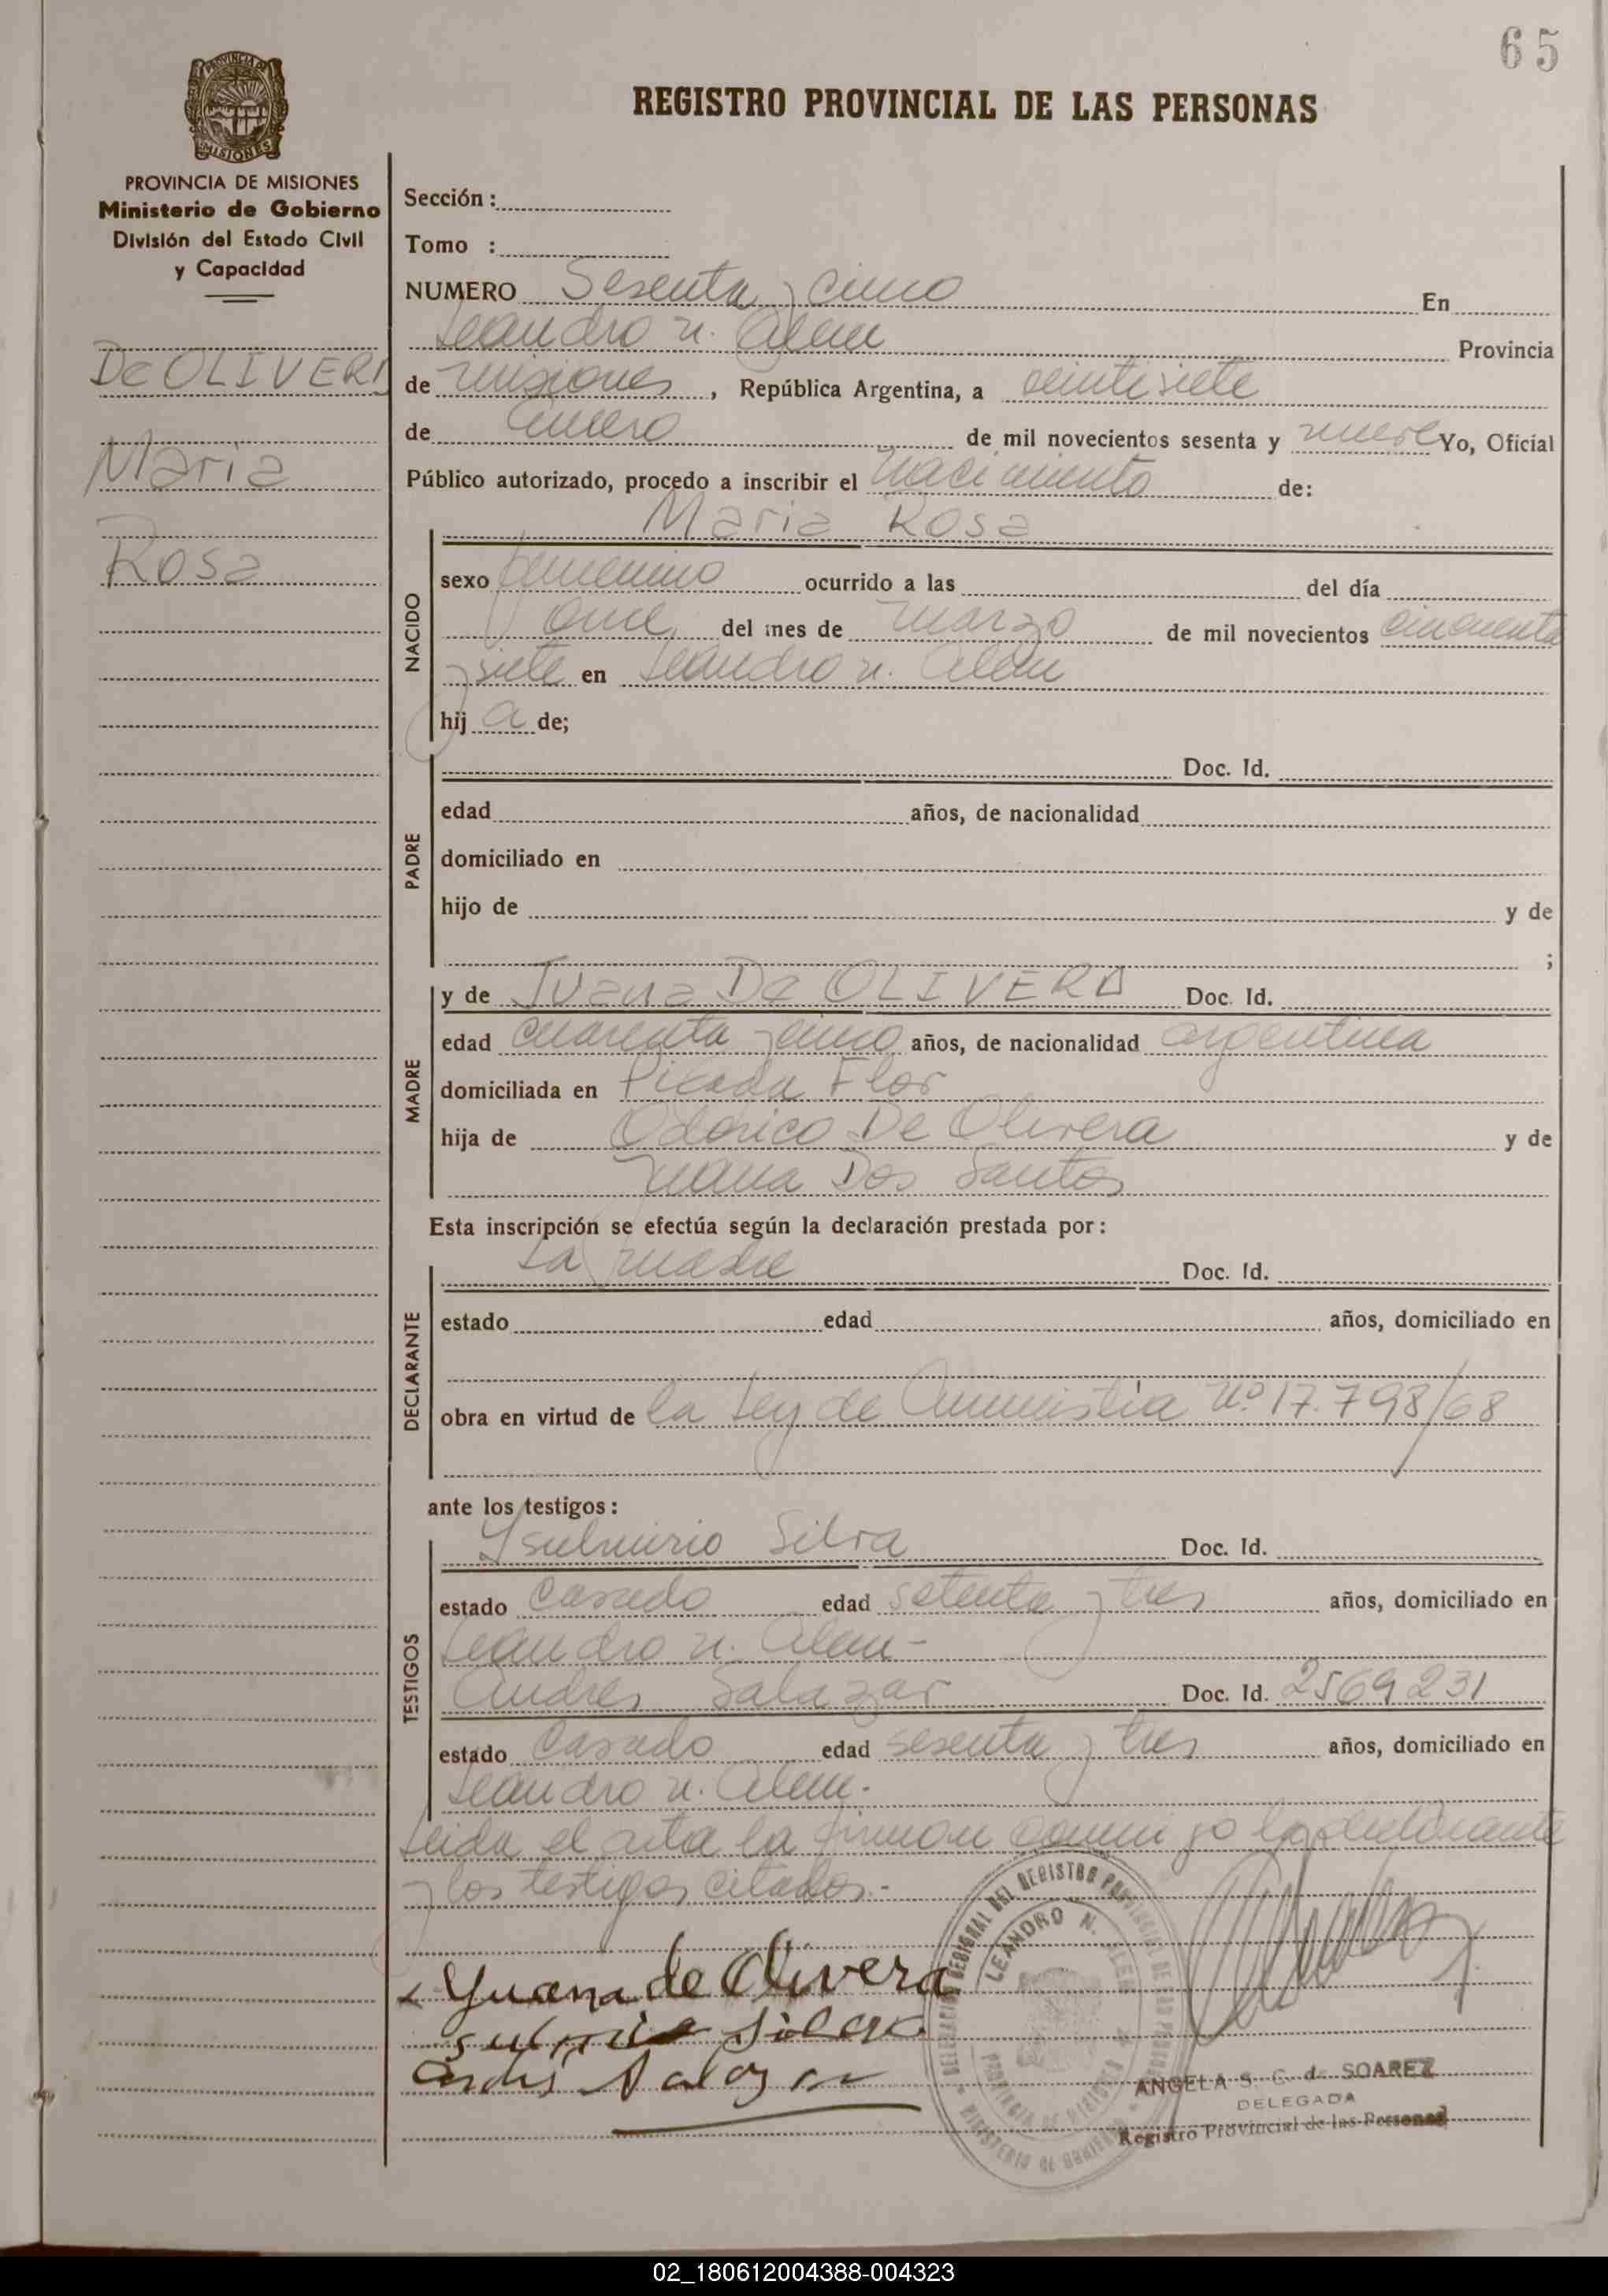 65
REGISTRO PROVINCIAL DE LAS PERSONAS
PROVINCIA DE MISIONES
Ministerio de Gobierno
División del Estado Civil
y Capacidad
De OLIVERA
Maria
Rosa
Sección :
Tomo :
NUMERO Sesenta y cinco En
Leandro N. Alem Provincia
de Misiones, República Argentina, a veintisiete
de Enero de mil novecientos sesenta y nueve Yo, Oficial
Público autorizado, procedo a inscribir el nacimiento de:
Maria Rosa
NACIDO
sexo femenino ocurrido a las del día
once del mes de marzo de mil novecientos cincuenta
y siete en Leandro N. Alem
hij a de;
PADRE
Doc. Id.
edad años, de nacionalidad
domiciliado en
hijo de y de
;
MADRE
y de Juana De OLIVERA Doc. Id.
edad cuarenta y cinco años, de nacionalidad argentina
domiciliada en Picada Flor
hija de Odorico De Olivera y de
Juana Dos Santos
Esta inscripción se efectúa según la declaración prestada por:
DECLARANTE
La madre Doc. Id.
estado edad años, domiciliado en
obra en virtud de la Ley de Amnistia Nº 17.798/68
ante los testigos:
TESTIGOS
Ysulmirio Silva Doc. Id.
estado Casado edad setenta y tres años, domiciliado en
Leandro N. Alem-
Andres Salazar Doc. Id. 2569231
estado Casado edad sesenta y tres años, domiciliado en
Leandro N. Alem.
Leida el acta la firman conmigo la declarante
y los testigos citados.-
Yuana de Olivera
Silva
LEANDRO N. ALEM
ANGELA S. C. de SOAREZ
DELEGADA
Registro Provincial de las Personas
02_180612004388-004323